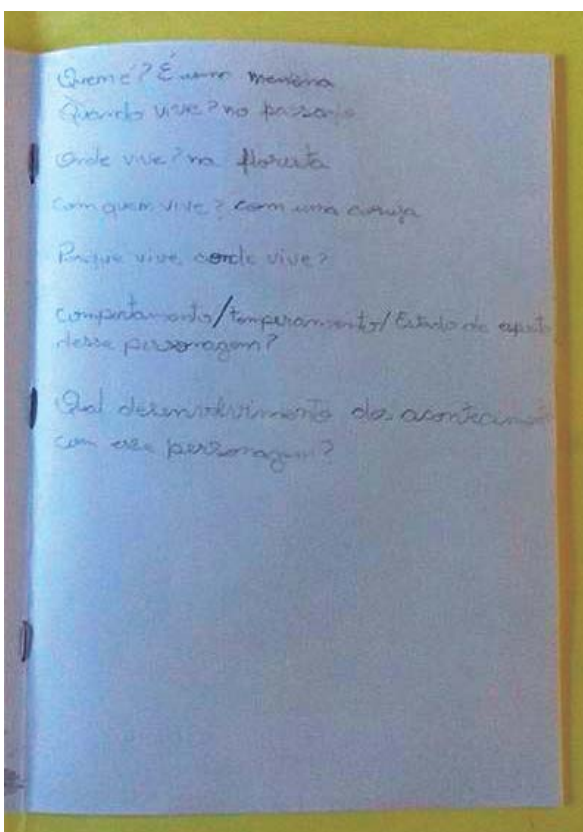 Quem é? É uma menina
Quando vive? no passado
Onde vive? na floresta
Com quem vive? com uma coruja
Porque vive, onde vive?
comportamento/temperamento/Estado de espirito
desse personagem?
Qual desenvolvimento dos acontecimentos
com esse personagem?